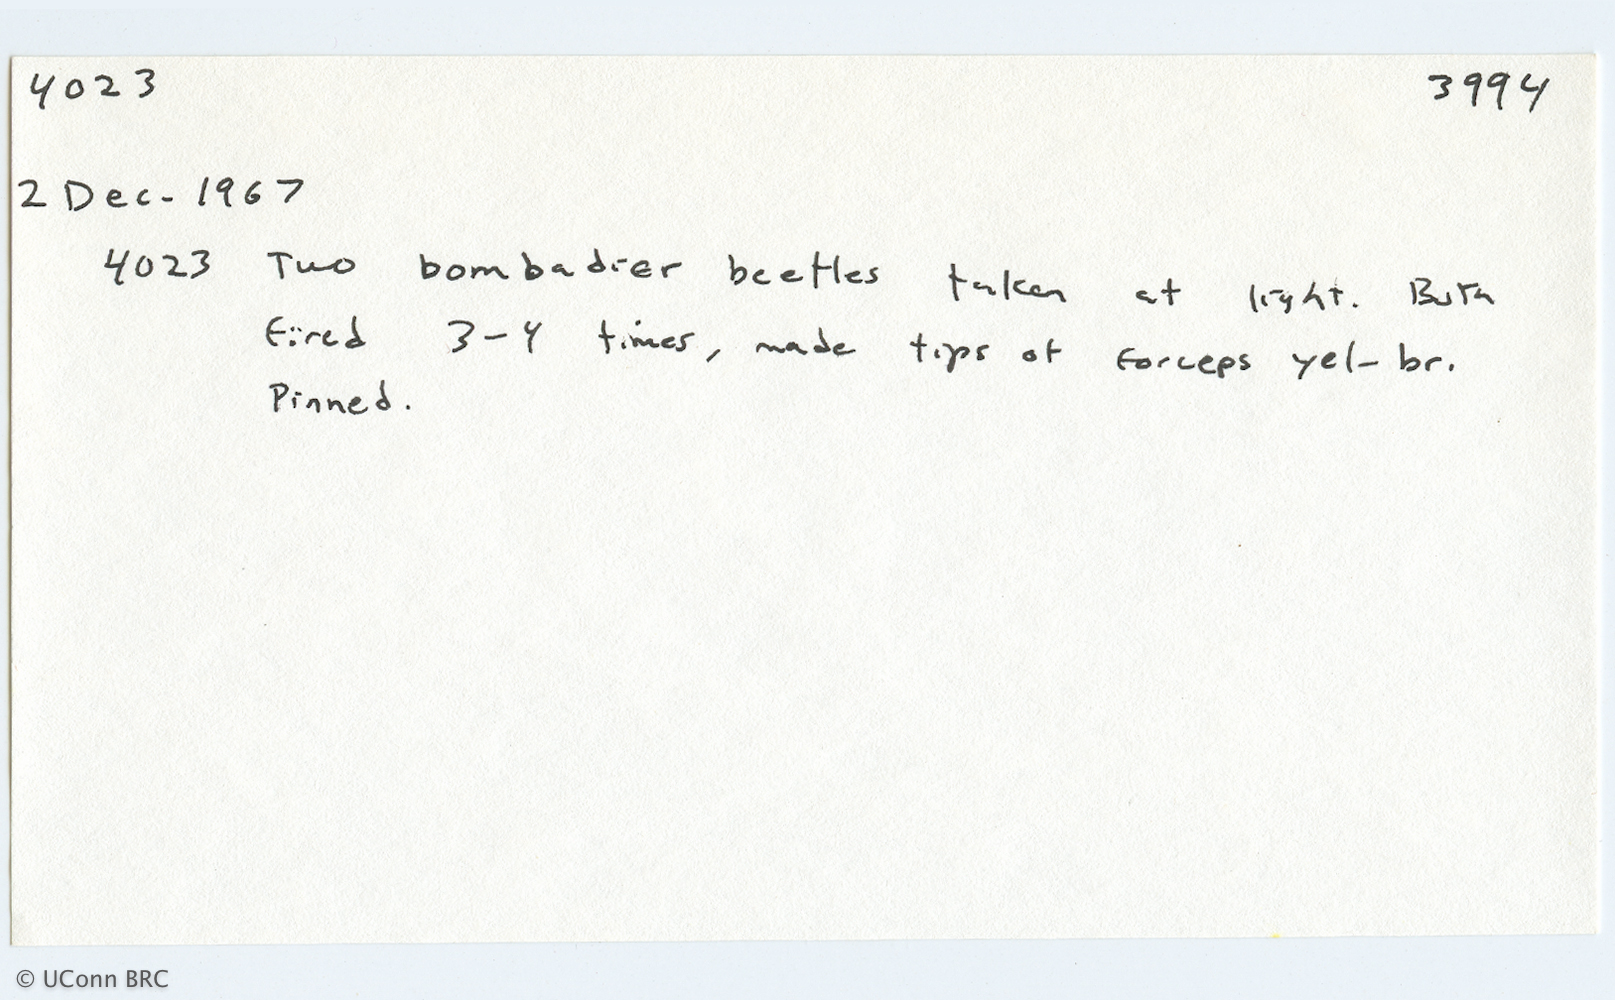 4023 3994
2 Dec. 1967
4023 Two bombadier beetles taken at light. Both
fired 3-4 times, made tips of forceps yel-br.
Pinned.
© UConn BRC